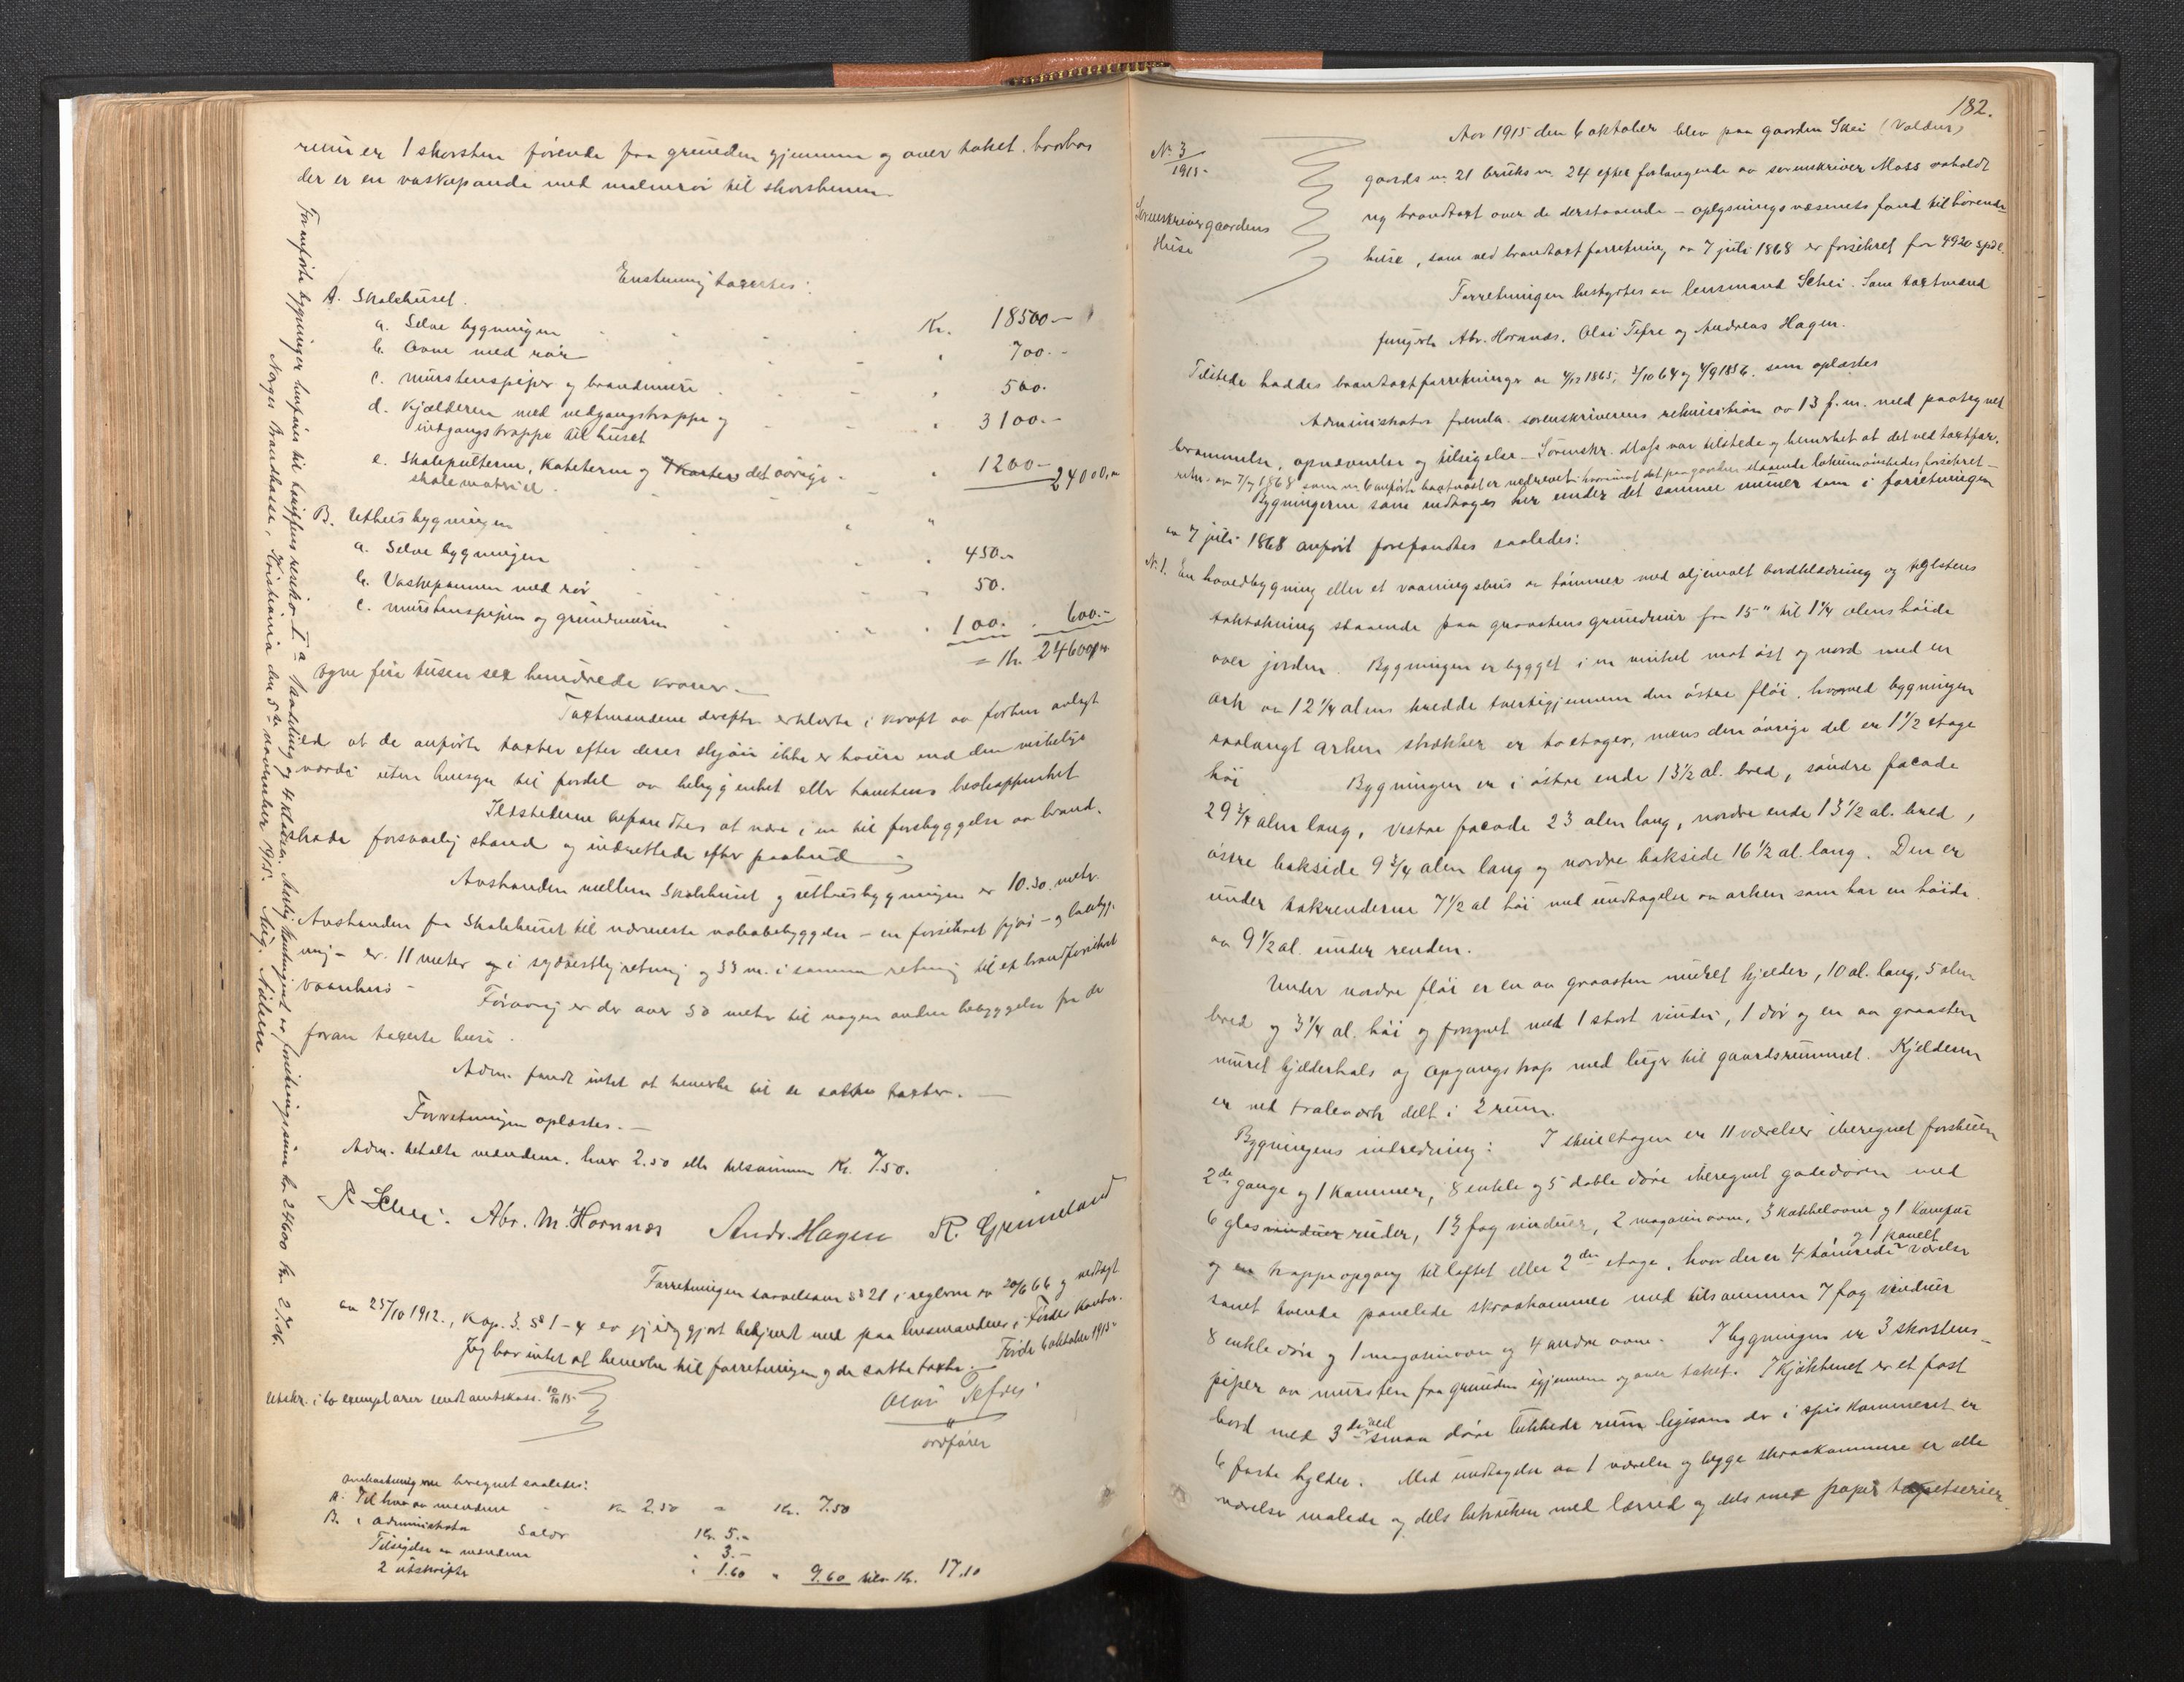 rum er 1 skorsten förende fra grunden gjennem og over taket. hvorhos
der er en vaskepande med malmrör til skorstenen.
Enstemmig taxertes:
A. Skolehuset.
a. Selve bygningen Kr. 18500.-
b. Ovne med rör " 700.-
c. murstenspiper og brandmure " 500.
d. Kjælderen med nedgangstrappe og
indgangstrappe til huset " 3100.-
e. Skolepulterne, Kateterne og Karter det övrige
skolemateriel. " 1200.- 24000,00
B. Uthusbygningen
a. Selve bygningen " 450.-
b. Vaskepannen med rör 50.
c. murstenspipen og grundmuren 100. . 600.-
= Kr. 24600,00
tyve fire tusen sex hundrede kroner.-
Taxtmændene derefter erklærte i kraft av forhen avlagt
ed at de anförte taxter efter deres skjön ikke er höiere end den virkelige
værdi uten hensyn til fordel av beliggenhet eller tomtens beskaffenhet
Ildstederne befandtes at være i en til forebyggelse av brand-
skade forsvarlig stand og indrettede efter paabud
Avstanden mellem Skolehuset og uthusbygningen er 10.30 meter.
Avstanden fra Skolehuset til nærmeste nabobebyggelse - en forsikret fjös - og ladebyg-
ning - er 11 meter og i sydvestlig retning og 33 m. i samme retning til et brandforsikret
vaanhus -
Forövrig er der over 50 meter til nogen anden bebyggelse fra de
foran taxerte huse.
Adm. fandt intet at bemerke til de satte taxter.-
Forretningen oplæstes.-
Adm. betalte mændene. hver 2.50 eller tilsammen Kr. 7.50.
Schei. Abr. M. Hornnes Andr. Hagen R. Grimeland
Forretningen saavelsom §§ 21 i reglerne av 20/6 66 og vedtægt
av 25/10 1912., Kap. 3. §§ 1-4 er jeg idag gjort bekjendt med paa lensmandens i Förde Kontor.
Jeg har intet at bemerke til forretningen og de satte taxter.-
Förde 6 oktober 1915
Olai Tefre
ordförer
Utskr. i to exemplarer sendt amtskass. 10/10 15.
Omkostningerne beregnet saaledes:
A. Til hver av mændene Kr 2.50 = Kr. 7.50
B. " Administrator Salær Kr. 5.-
Tilsigelse av mændene " 3.-
2 utskrifter " 1.60 " 9.60 tils. Kr. 17.10
Foranförte bygninger henförer til brugens resiko 1ste avdeling og 4 klasse. Aarlig kontingent av forsikringssum kr 24600 kr.
Norges Brandkasse, Kristiania den 5te november 1915. Aug. Nilsen
182.
No 3
1915
Sorenskrivergaardens
Huse
Aar 1915 den 6 oktober blev paa gaarden Skei (Valdur)
gaards nr. 21 bruks nr. 24 efter forlangende av sorenskriver Moss avholdt
ny brandtaxt over de derstaaende - oplysningsvæsenets fond tilhörende
huse, som ved brandtaxtforretning av 7 juli 1868 er forsikret for 4920 spdl.
Forretningen bestyrtes av lensmand Schei. Som taxtmænd
fungerte Abr. Hornnæs, Olai Tefre og Andreas Hagen.
Tilstede haddes brandtaxtforretninger av 4/12 1865, 3/10 64 og 4/9 1856. som oplæstes
Administrator fremla. sorenskriverens rekvisition av 13 f.m. med paategnet
berammelse, opnævnelse og tilsigelse - Sorenskr. Moss var tilstede og bemerket at det ved taxtfor-
retn. av 7/7 1868 som nr. 6 anförte taxt er nedrevet hvorimot det paa gaarden staaende forsikret -
Bygningerne som indtages her under det samme numer som i forretningen
av 7 juli 1868 anfört forefandtes saaledes:
Nr. 1. En hovedbygning eller et vaaningshus av tömmer med oljemalt bordklædning og tegelstens
taktækning staaende paa graastens grundmur fra 15" til 1 1/4 alens höide
over jorden. Bygningen er bygget i en vinkel mot öst og nord med en
ark av 12 1/4 alens bredde tvertigjennem den östre flöi. hvorved bygningen
saalangt arken strækker er to etager, mens den övrige del er 1 1/2 etage
höi Bygningen er i östre ende 13 1/2 al. bred, söndre facade
29 3/4 alen lang, vestre facade 23 alen lang, nordre ende 13 1/2 al. bred,
östre bakside 9 3/4 alen lang og nordre bakside 16 1/2 al. lang. Den er
under takrenderne 7 1/2 al höi med undtagelse av arken som har en höide
av 9 1/2 al. under renden.
Under nordre flöi er en av graasten muret kjelder, 10 al. lang, 5 alen
bred og 3 1/4 al. höi og forsynet med 1 stort vindu, 1 dör og en av graasten
muret kjelderhals og opgangstrap med luger til gaardsrummet. Kjelderen
er ved traleverk delt i 2 rum.
Bygningens indredning: I stueetagen er 11 værelser iberegnet forstuen
2de gange og 1 Kammer, 8 enkle og 5 doble döre iberegnet gatedören med
6 glasvinduer ruder, 13 fag vinduer, 2 magasinovne, 3 kakkelovne og 1 Komfur
og en trappeopgang til loftet eller 2den etage, hvor der er 4 tömrede og 1 panelt værelse
samt tvende panelede skraakammer med tilsammen 7 fag vinduer
8 enkle döre og 1 magasinovn og 4 andre ovne. I bygningen er 3 skorstens-
piper av mursten fra grunden igjennem og over taket. I Kjökkenet er et fast
bord med 3de ved smaa döre lukkede rum ligesom der i spiskammeret er
6 faste hylder. Med undtagelse av 1 værelse og begge skraakammere er alle
værelser malede og dels betrukne med lærred og dels med papir tapetserier.